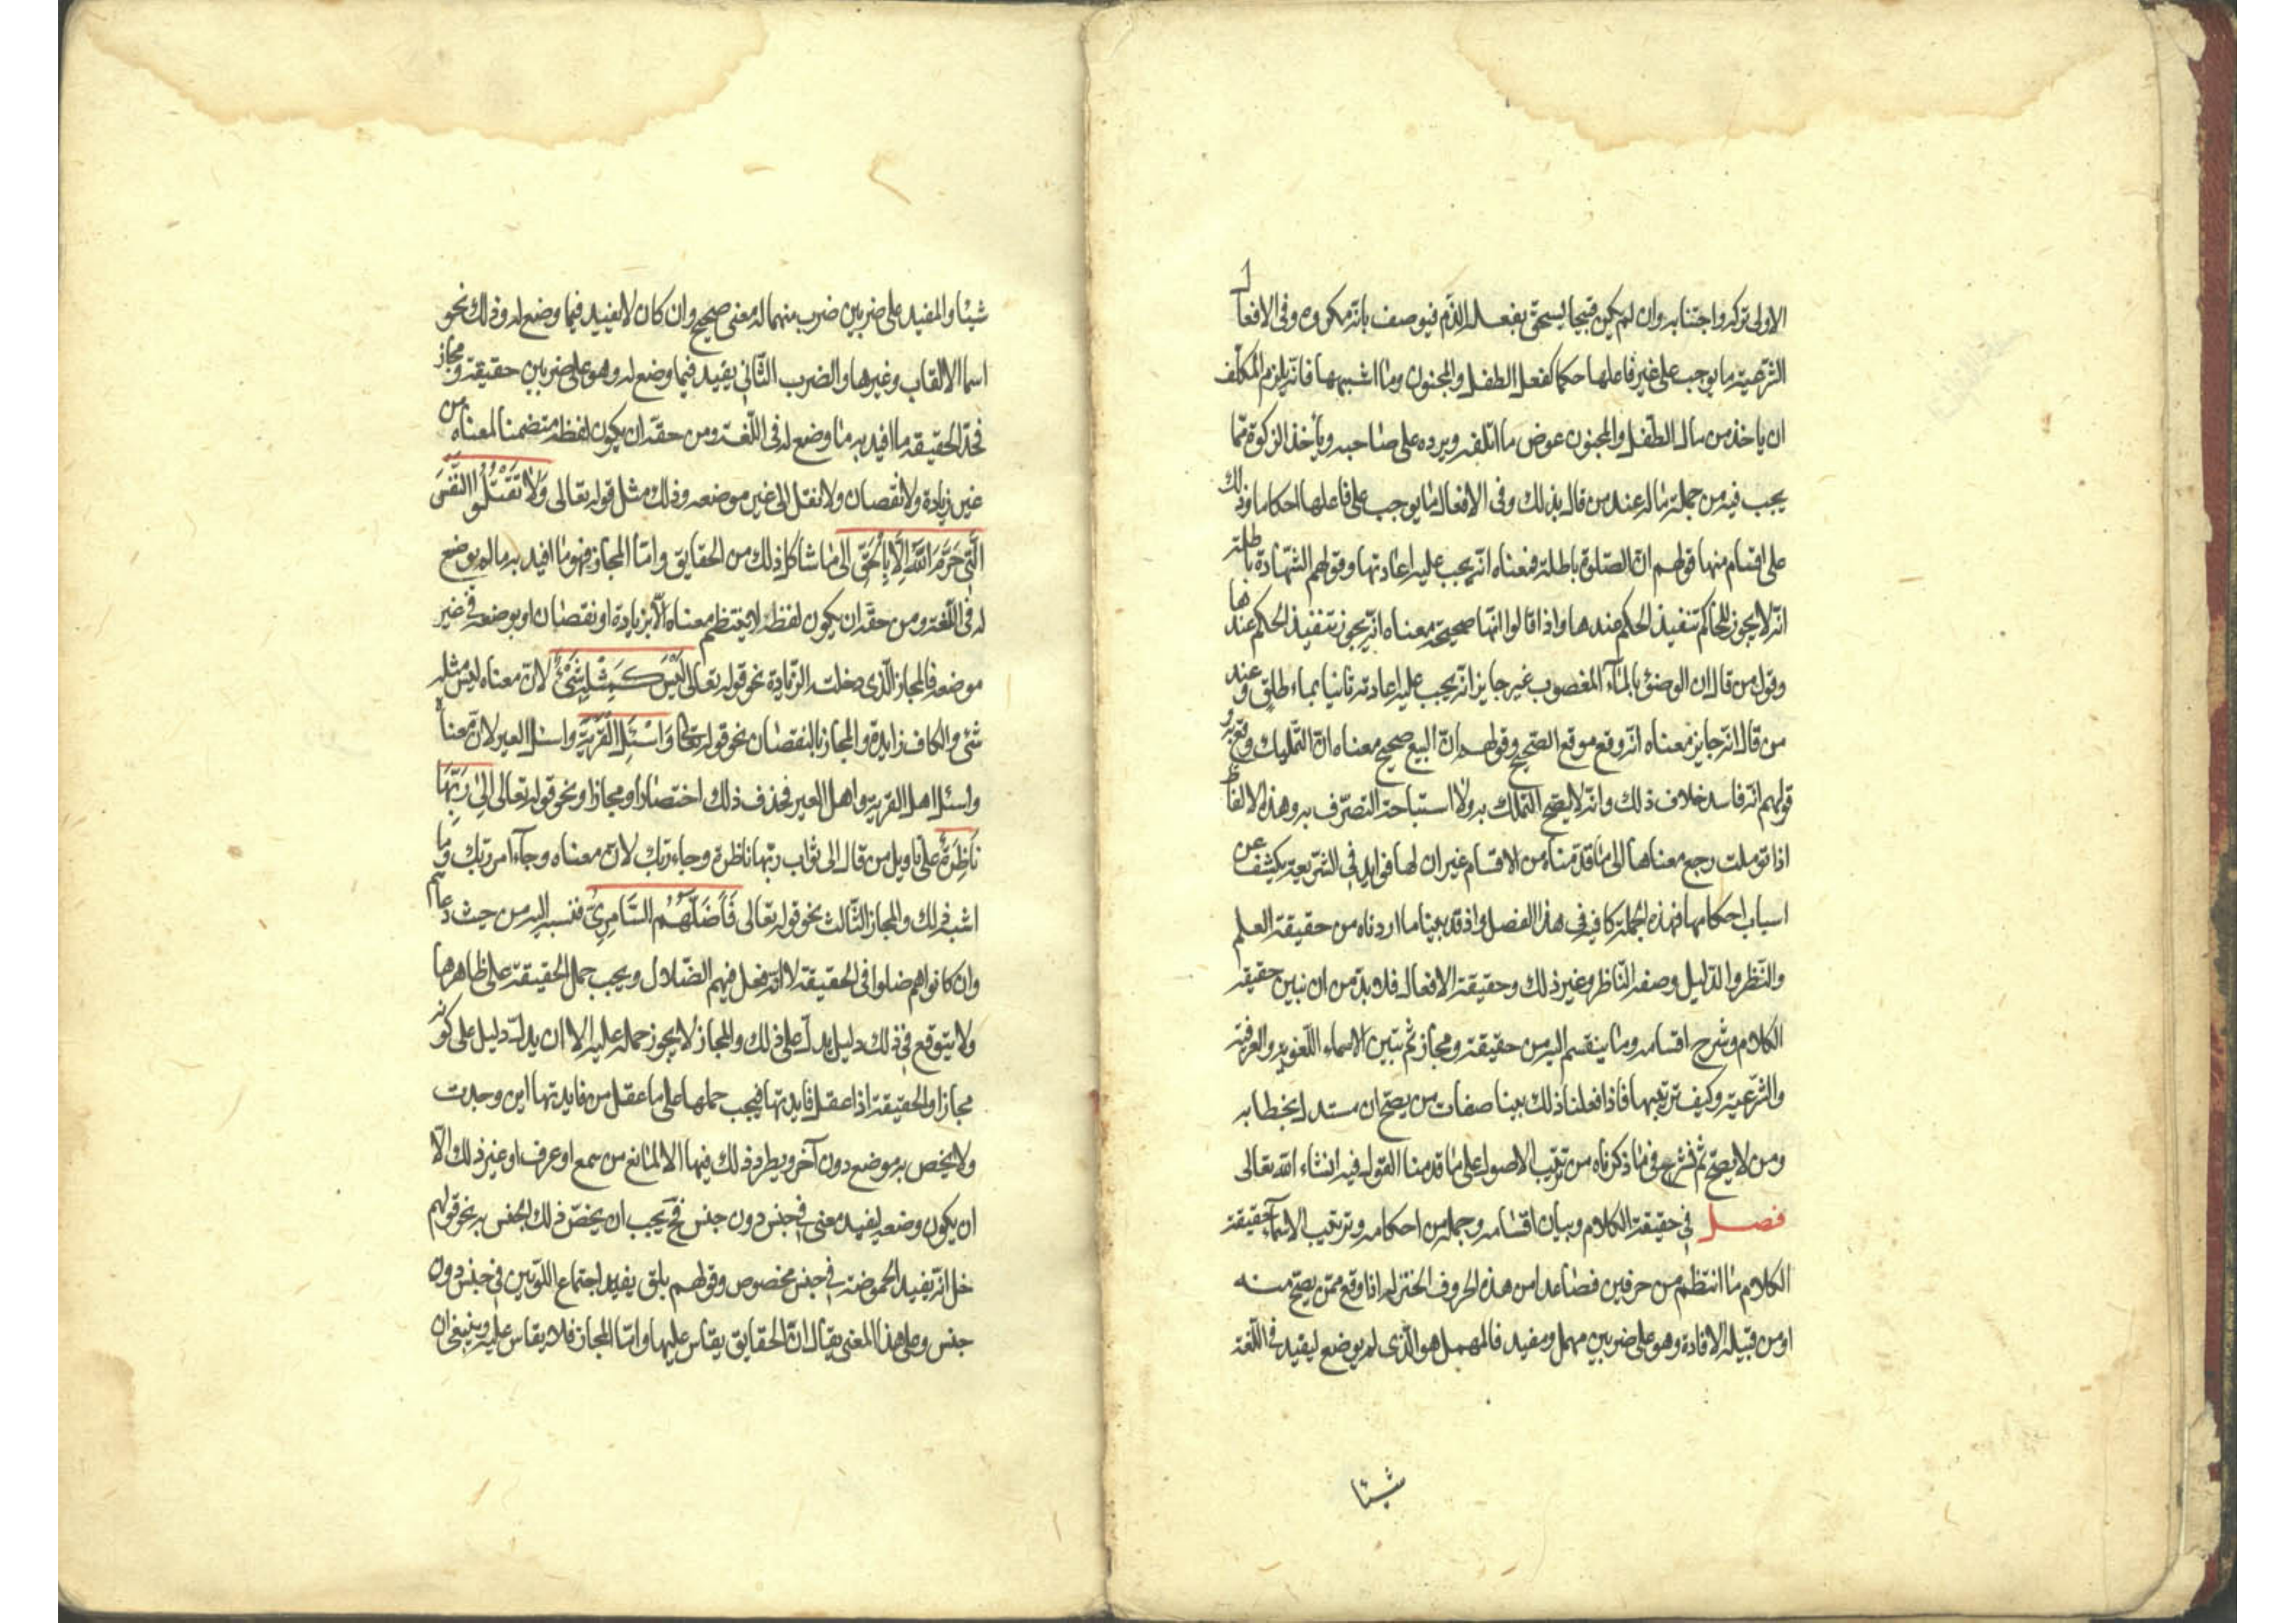 الاولى تركه واجتنابه وان لم يكن قبيحا يستحق بفعله الذم فيوصف بانه مكروه وفى الافعال
الشرعية ما يوجب على غير فاعلها حكما كفعل الطفل والمجنون وما اشبههما فانه يلزم المكلف
ان ياخذ من مال الطفل والمجنون عوض ما اتلفه ويرده على صاحبه ويأخذ الزكوة مما
يجب فيه من جملة ماله عند من قال بذلك وفى الافعال ما يوجب على فاعلها احكاما وذلك
على اقسام منها قولهم ان الصلوة باطلة فمعناه انه يجب عليه اعادتها وقولهم الشهادة باطلة
انه لا يجوز للحاكم تنفيذ الحكم عندها واذا قالوا انها صحيحة معناه انه يجوز تنفيذ الحكم عندها
وقول من قال ان الوضوء بالمآء المغصوب غير جايز انه يجب عليه اعادته ثانيا بماء طلق وعند
من قال انه جايز معناه انه وقع موقع الصحيح وقولهم ان البيع صحيح معناه ان التمليك وقع به و
قولهم انه فاسد خلاف ذلك وانه لا يصح التملك به ولا استباحة التصرف به وهذه الالفاظ
اذا تؤملت رجع معناها الى ما قدمناه من الاقسام غير ان لها فوايد فى الشريعة يكشف عن
اسباب احكامها فهذه الجملة كافية فى هذا الفصل واذ قد بينا ما اردناه من حقيقة العلم
والنظر والدليل وصفة الناظر وغير ذلك وحقيقة الافعال فلا بد من ان نبين حقيقة
الكلام وشرح اقسامه وما ينقسم اليه من حقيقة ومجاز ثم نبين الاسماء اللغوية والعرفية
والشرعية وكيف ترتيبها فاذا فعلنا ذلك بينا صفات من يصح ان يستدل بخطابه
ومن لا يصح ثم نشرع فى ما ذكرناه من ترتيب الاصول على ما قدمنا القول فيه انشاء الله تعالى
فصل فى حقيقة الكلام وبيان اقسامه وجملة من احكامه وترتيب الاسمآء حقيقة
الكلام ما انتظم من حرفين فصاعدا من هذه الحروف المعقولة اذا وقع ممن يصح منه
او من قبيله الافادة وهو على ضربين مهمل ومفيد فالمهمل هو الذى لم يوضع ليفيد فى اللغة
شيئا
شيئا والمفيد على ضربين ضرب منهما له معنى صحيح وان كان لا يفيد فيما وضع له وذلك نحو
اسما الالقاب وغيرها والضرب الثانى يفيد فيما وضع له وهو على ضربين حقيقة ومجاز
فحد الحقيقة ما افيد به ما وضع له فى اللغة ومن حقه ان يكون لفظه متضمنا لمعناه من
غير زيادة ولا نقصان ولا نقل الى غير موضعه وذلك مثل قوله تعالى وَلَا تَقْتُلُوا النَّفْسَ
الَّتِى حَرَّمَ اللَّهُ اِلَّا بِالْحَقِّ الى ما شاكل ذلك من الحقايق واما المجاز فهو ما افيد به ما لم يوضع
له فى اللغة ومن حقه ان يكون لفظه لا ينتظم معناه الا بزيادة او نقصان او بوضعه فى غير
موضعه فالمجاز الذى دخلت الزيادة نحو قوله تعالى لَيْسَ كَمِثْلِهِ شَىْءٌ لان معناه ليس مثله
شئ والكاف زايدة والمجاز بالنقصان نحو قوله تعالى وَاسْئَلِ الْقَرْيَةَ واسئل العير لان معناه
واسئل اهل القرية واهل العير فحذف ذلك اختصارا ومجازا ونحو قوله تعالى اِلٰى رَبِّهَا
نَاظِرَةٌ على تاويل من قال الى ثواب ربها ناظرة وجاء ربك لان معناه وجآء امر ربك وما
اشبه ذلك والمجاز الثالث نحو قوله تعالى فَاَضَلَّهُمُ السَّامِرِىُّ فنسبه اليه من حيث دعاهم
وان كانوا هم ضلوا فى الحقيقة لا انه فعل فيهم الضلال ويجب حمل الحقيقة على ظاهرها
ولا يتوقع فى ذلك دليل يدل على ذلك والمجاز لا يجوز حمله عليه الا ان يدل دليل على كونه
مجازا والحقيقة اذا عقل فايدتها فيجب حملها على ما عقل من فايدتها اين وجدت
ولا يخص به موضع دون آخر ويطرد ذلك فيها الا لمانع من سمع او عرف او غير ذلك الا
ان يكون وضعه ليفيد معنى فى جنس دون جنس فح يجب ان يخص ذلك الجنس به نحو قولهم
خل انه يفيد الحموضة فى جنس مخصوص وقولهم بلق يفيد اجتماع اللونين فى جنس دون
جنس وعلى هذا المعنى يقال ان الحقايق يقاس عليها واما المجاز فلا يقاس عليه وينبغى ان